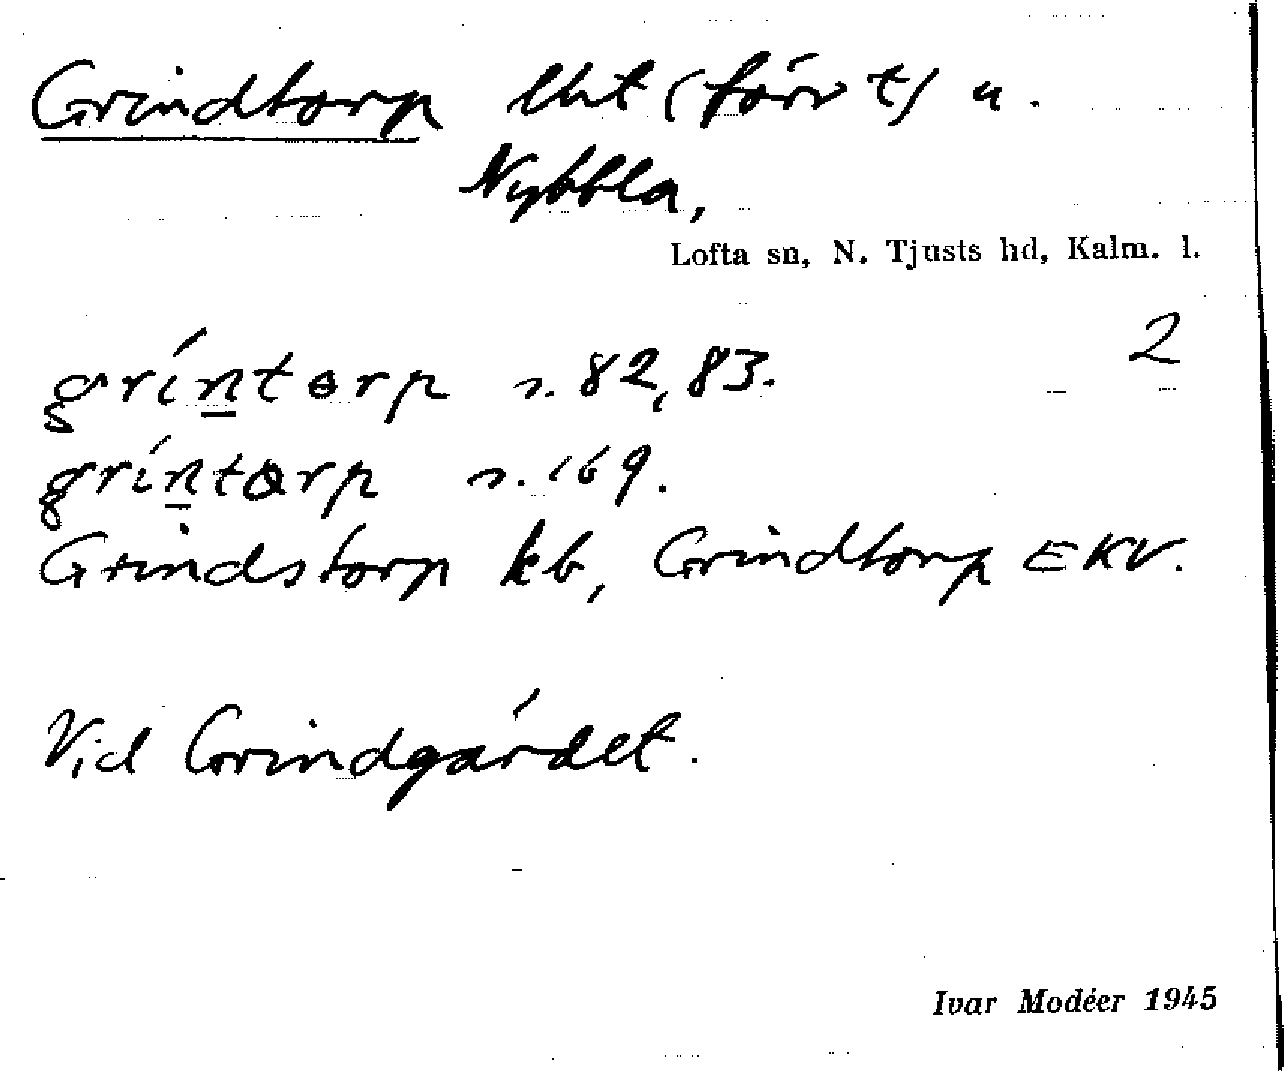 Grindtorp lht (förr t) u.
Nybbla,
Lofta sn, N. Tjusts hd, Kalm. l.
2
gríntorp s. 82, 83.
gríntorp s. 169.
Grindstorp kb, Grindtorp EKV.
Vid Grindgärdet.
Ivar Modéer 1945